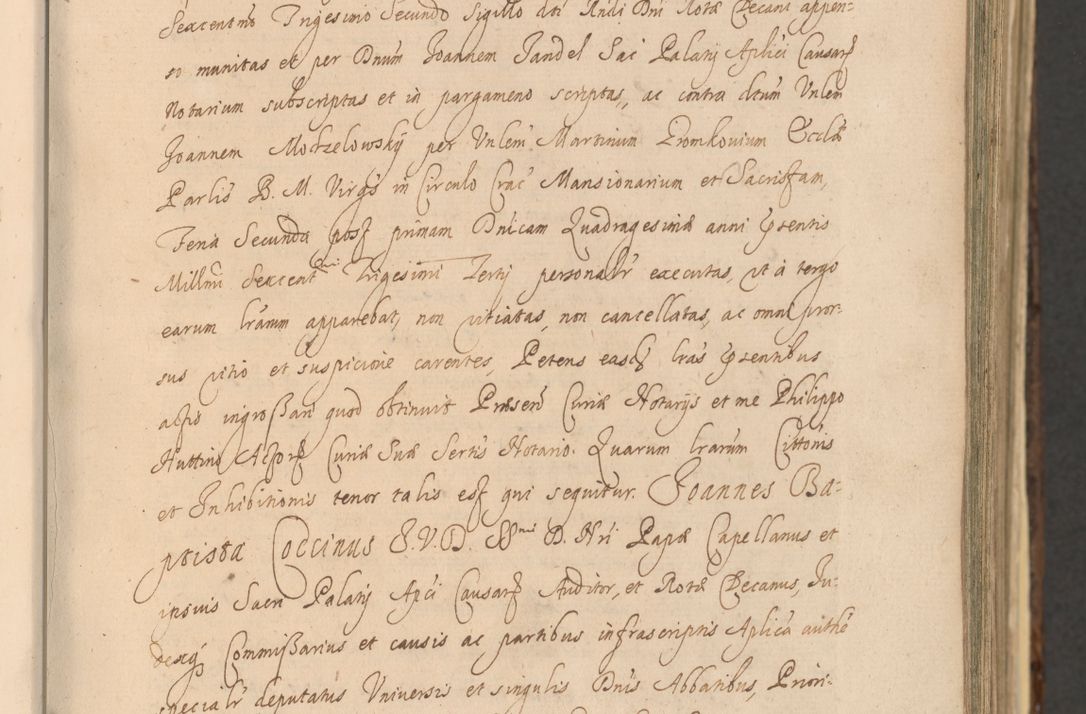 Sexcentmo Trigesimo Secundo Sigillo dti Andi Dni Rotæ Decani appen-
so munitas et per Dnum Joannem Jandel Sac Palatij Aplici Causarũ
Notarium subscriptas et in pargameno scriptas, ac contra dtum Vnlem
Joannem Modzelowskÿ per Vnlem Martinum Promkovium Ecclæ
Parlis B. M. Virgs in Circulo Crac Mansionarium et Sacristam,
Feria Secunda post primam Dnicam Quadragesimæ anni pṡentis
Millmi Sexcent mi Trigesimi Tertij personalr executas, ut à tergo
earum lrarum apparebat, non vitiatas, non cancellatas, ac omni pror-
sus vitio et suspicione carentes, Petens easdẽ lras pṡentibus
actis ingrossari quod obtinuit Præsen Curiæ Notarijs et me Philippo
Huttini Curiæ Suæ Sertis Notario. Quarum lrarum Cittonis
et Inhibitionis tenor talis est qui sequitur. Joannes Ba-
ptista Coccinus J. V. D. SSmi D. Nri Papæ Capellanus et
ipsius Sacri Palatij Apci Causarũ Auditor, et Rotæ Decanus, Ju-
dexq Commissarius et causis ac partibus infrascriptis Aplicâ authe
specialr deputatus Vniversis et singulis Dnis Abbatibus, Priori-